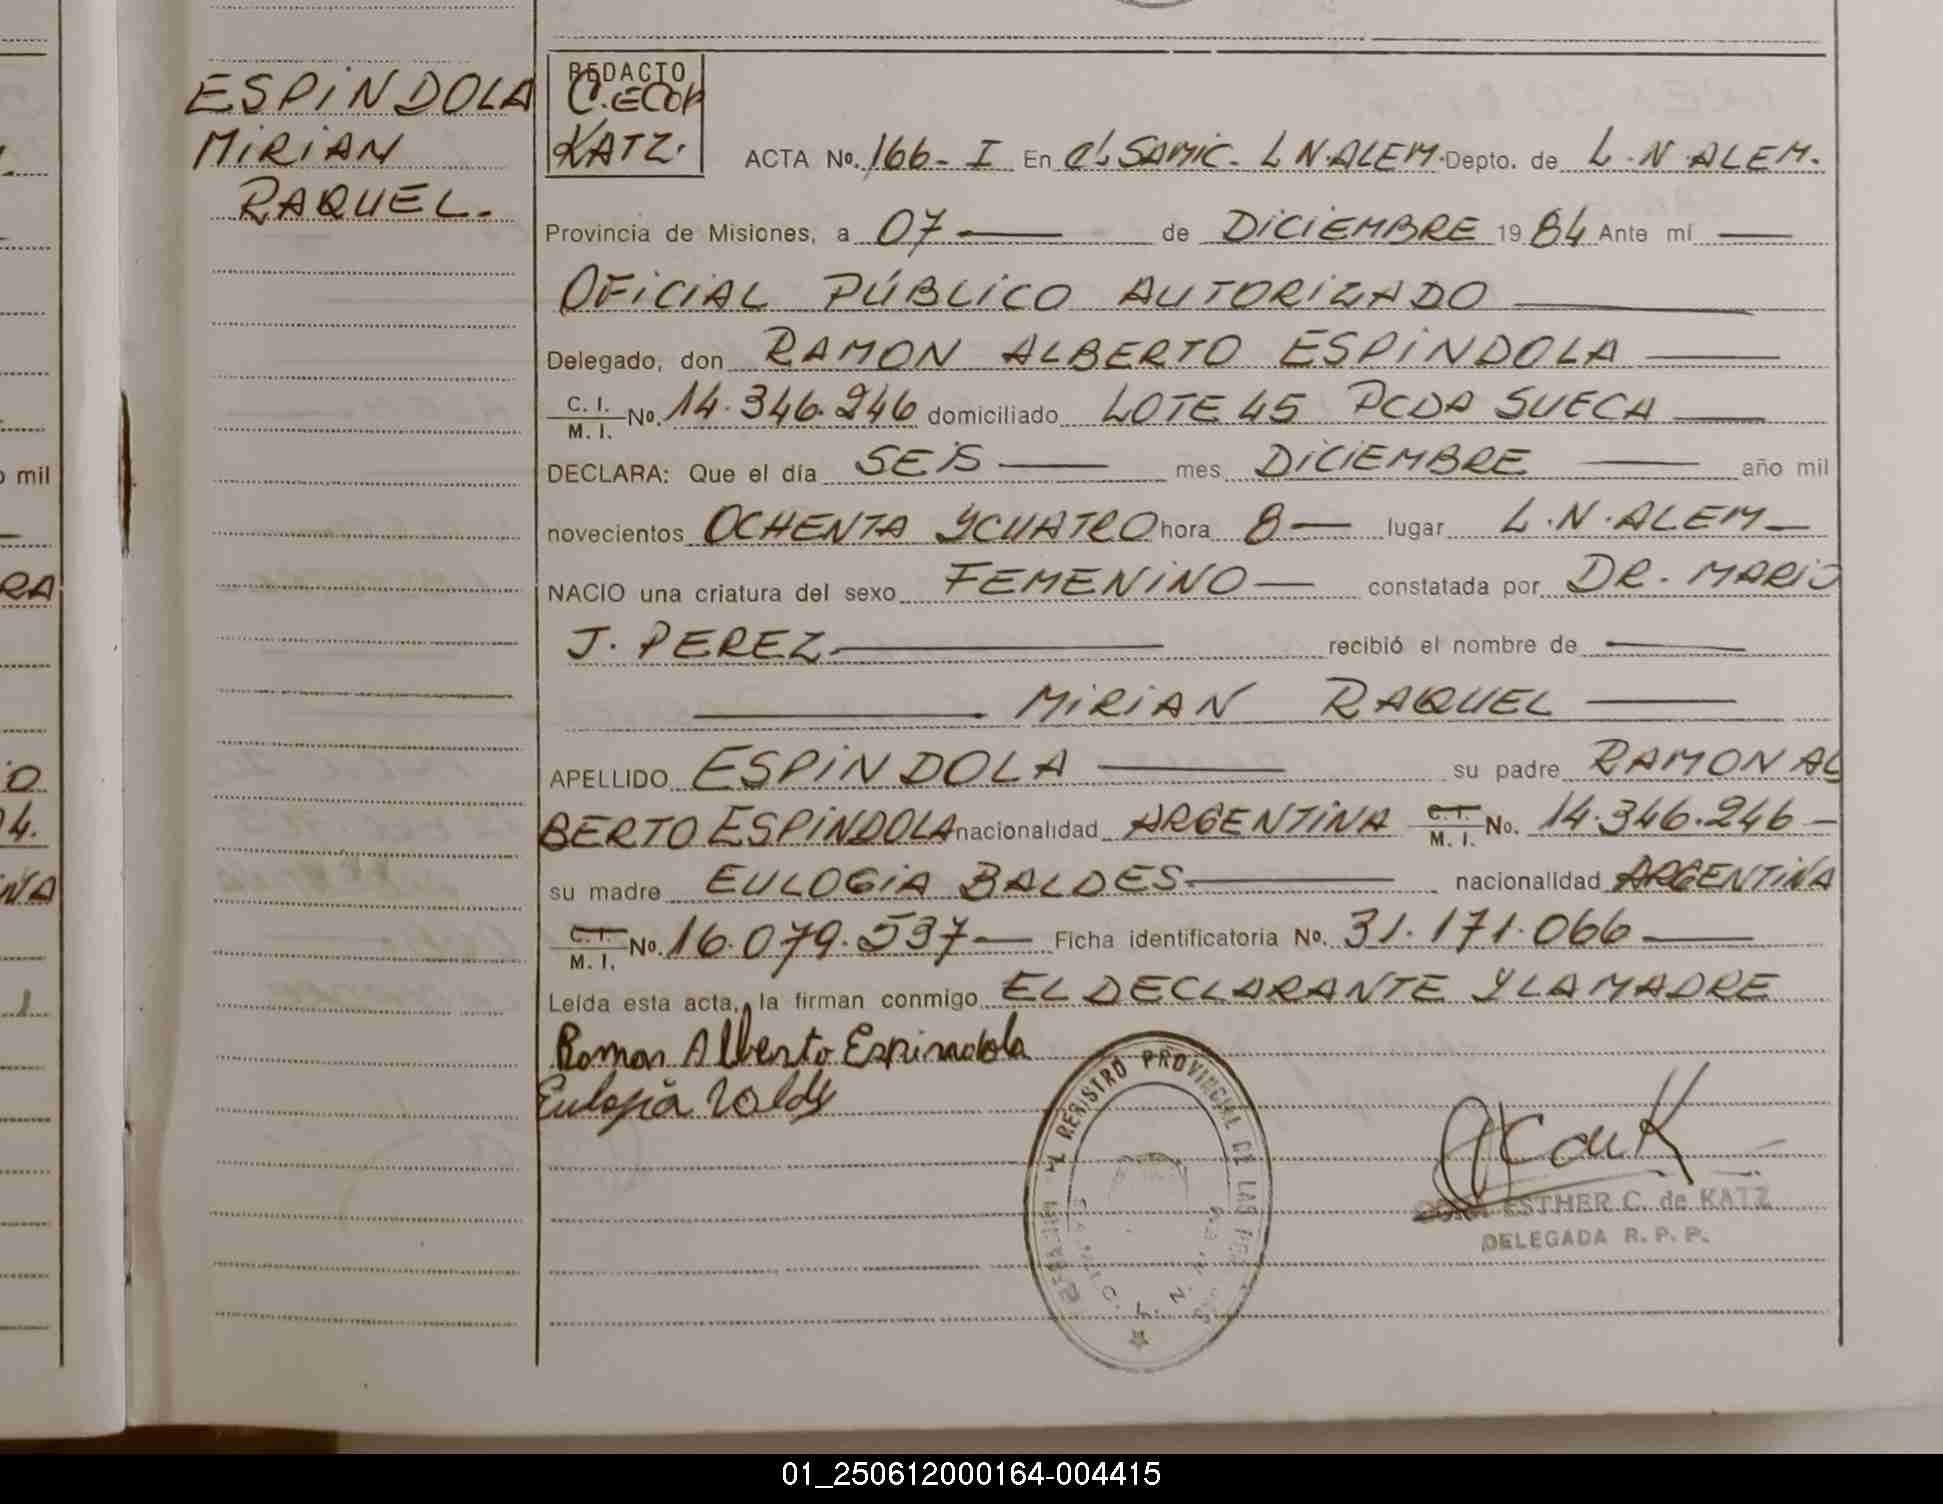 ESPINDOLA
MIRIAN
RAQUEL.
REDACTO
C. ECOR
KATZ.
ACTA No. 166- I En el SAMIC. L N. ALEM. Depto. de L. N. ALEM.
Provincia de Misiones, a 07 — de DICIEMBRE 19 84 Ante mí —
OFICIAL PÚBLICO AUTORIZADO —
Delegado, don RAMON ALBERTO ESPINDOLA —
C. I. M. I. No. 14.346.246 domiciliado LOTE 45 PCDA SUECA —
DECLARA: Que el día SEIS — mes DICIEMBRE — año mil
novecientos OCHENTA Y CUATRO hora 8 — lugar L. N. ALEM —
NACIO una criatura del sexo FEMENINO — constatada por DR. MARIO
J. PEREZ — recibió el nombre de —
— MIRIAN RAQUEL —
APELLIDO ESPINDOLA — su padre RAMON AL
BERTO ESPINDOLA nacionalidad ARGENTINA C. I. M. I. No. 14.346.246 —
su madre EULOGIA BALDES — nacionalidad ARGENTINA
C. I. M. I. No. 16.079.537 — Ficha identificatoria No. 31.171.066 —
Leída esta acta, la firman conmigo EL DECLARANTE Y LA MADRE
Ramon Alberto Espindola
Eulogia Valdes
REGISTRO PROVINCIAL DE LAS
ESTHER C. de KATZ
DELEGADA R. P. P.
o mil
RA
O
4.
NA
01_250612000164-004415